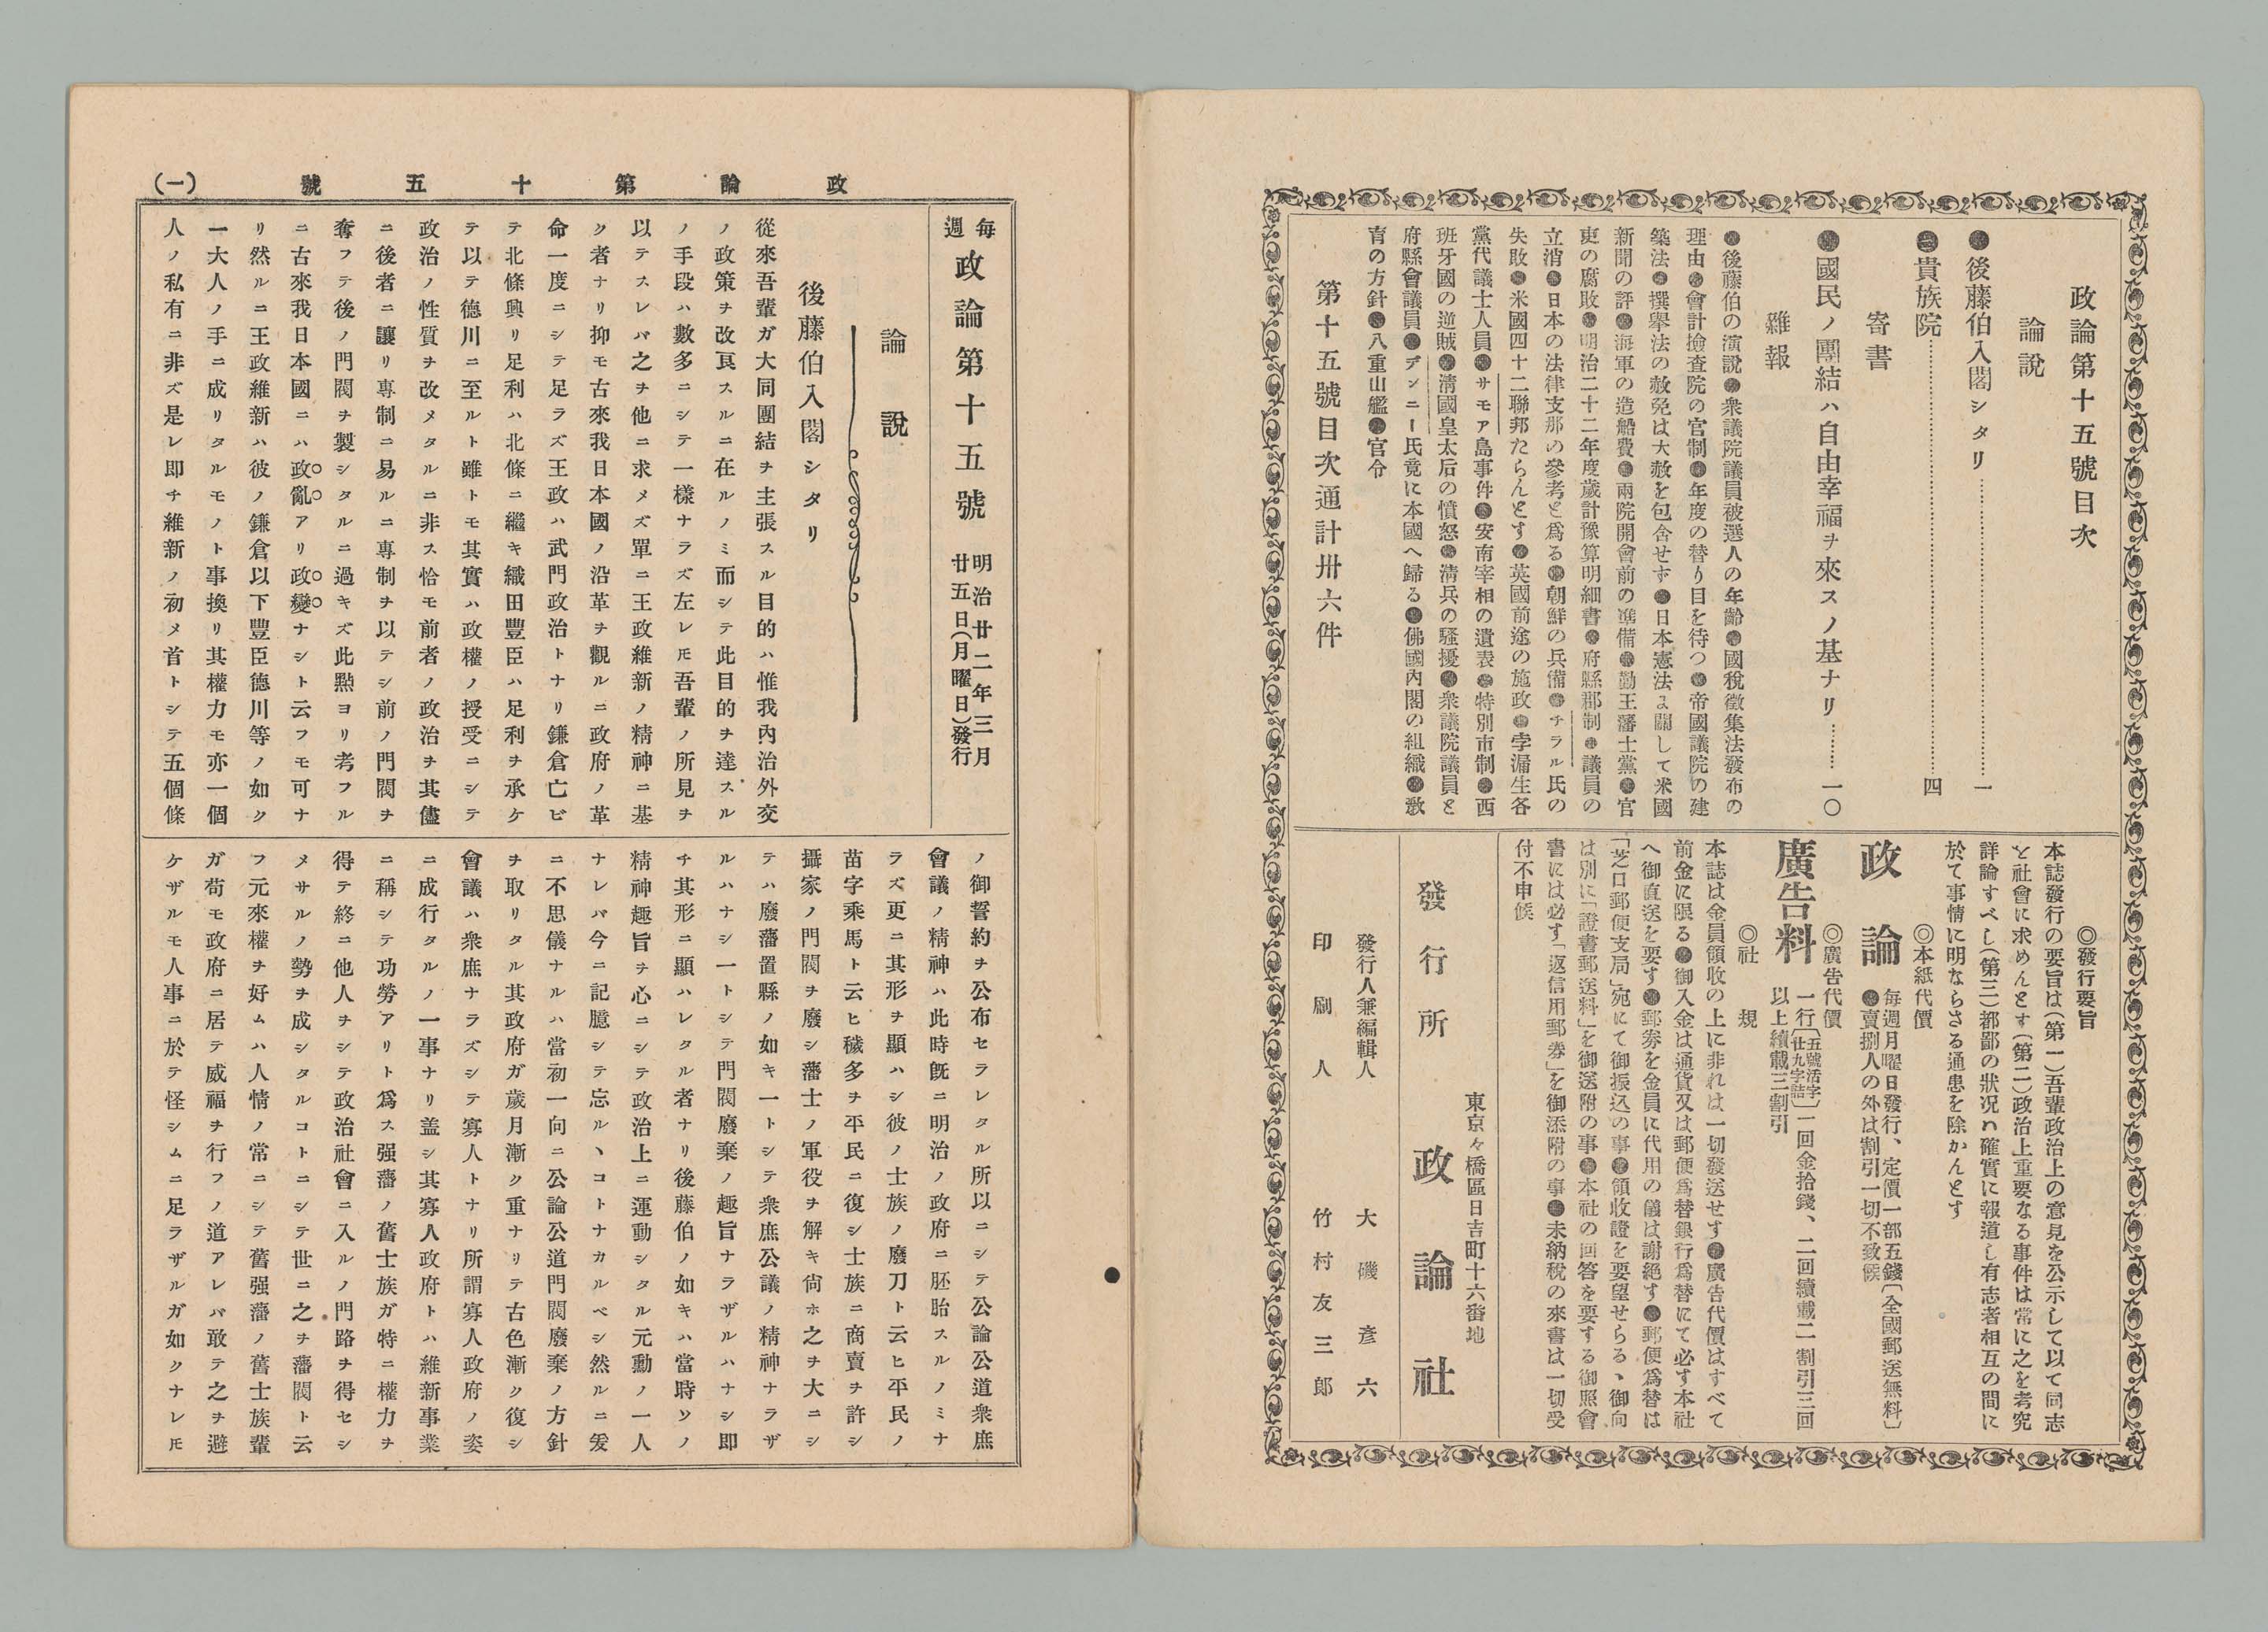 政論第十五號目次
論說
●後藤伯入閣シタリ……一
●貴族院……四
寄書
●國民ノ團結ハ自由幸福ヲ來スノ基ナリ……一〇
雜報
●後藤伯の演說●衆議院議員被選人の年齡●國稅徵集法發布の
理由●會計撿査院の官制●年度の替り目を待つ●帝國議院の建
築法●撰擧法の赦免は大赦を包含せず●日本憲法に關して米國
新聞の評●海軍の造船費●兩院開會前の準備●勤王藩士黨●官
吏の腐敗●明治二十二年度歲計豫算明細書●府縣郡制●議員の
立消●日本の法律支那の參考と爲る●朝鮮の兵備●チラル氏の
失敗●米國四十二聯邦たらんとす●英國前途の施政●孛漏生各
黨代議士人員●サモア島事件●安南宰相の遺表●特別市制●西
班牙國の逆賊●淸國皇太后の憤怒●淸兵の騷擾●衆議院議員と
府縣會議員●デンニー氏竟に本國へ歸る●佛國內閣の組織●敎
育の方針●八重山艦●官令
第十五號目次通計卅六件
◎發行要旨
本誌發行の要旨は(第一)吾輩政治上の意見を公示して以て同志
を社會に求めんとす(第二)政治上重要なる事件は常に之を考究
詳論すべし(第三)都鄙の狀況を確實に報道し有志者相互の間に
於て事情に明ならさる通患を除かんとす
◎本紙代價
政論 每週月曜日發行、定價一部五錢〔全國郵送無料〕
●賣捌人の外は割引一切不致候
◎廣告代價
廣告料 一行〔五號活字廿九字詰〕一回金拾錢、二回續載二割引三回
以上續載三割引
◎社規
本誌は金員領收の上に非れは一切發送せす●廣告代價はすべて
前金に限る●御入金は通貨又は郵便爲替銀行爲替にて必す本社
へ御直送を要す●郵券を金員に代用の儀は謝絕す●郵便爲替は
「芝口郵便支局」宛にて御振込の事●領收證を要望せらるゝ御向
は別に「證書郵送料」を御送附の事●本社の回答を要する御照會
書には必す「返信用郵券」を御添附の事●未納稅の來書は一切受
付不申候
東京々橋區日吉町十六番地
發行所 政論社
發行人兼編輯人 大磯彥六
印刷人 竹村友三郎
政論第十五號 (一)
每週 政論第十五號 明治廿二年三月廿五日(月曜日)發行
論說
後藤伯入閣シタリ
從來吾輩ガ大同團結ヲ主張スル目的ハ惟我內治外交
ノ政策ヲ改良スルニ在ルノミ而シテ此目的ヲ達スル
ノ手段ハ數多ニシテ一樣ナラズ左レ𪜈吾輩ノ所見ヲ
以テスレバ之ヲ他ニ求メズ單ニ王政維新ノ精神ニ基
ク者ナリ抑モ古來我日本國ノ沿革ヲ觀ルニ政府ノ革
命一度ニシテ足ラズ王政ハ武門政治トナリ鎌倉亡ビ
テ北條興リ足利ハ北條ニ繼キ織田豐臣ハ足利ヲ承ケ
テ以テ德川ニ至ルト雖トモ其實ハ政權ノ授受ニシテ
政治ノ性質ヲ改メタルニ非ス恰モ前者ノ政治ヲ其儘
ニ後者ニ讓リ專制ニ易ルニ專制ヲ以テシ前ノ門閥ヲ
奪フテ後ノ門閥ヲ製シタルニ過キズ此點ヨリ考フル
ニ古來我日本國ニハ政亂アリ政變ナシト云フモ可ナ
リ然ルニ王政維新ハ彼ノ鎌倉以下豐臣德川等ノ如ク
一大人ノ手ニ成リタルモノト事換リ其權力モ亦一個
人ノ私有ニ非ズ是レ卽チ維新ノ初メ首トシテ五個條
ノ御誓約ヲ公布セラレタル所以ニシテ公論公道衆庶
會議ノ精神ハ此時旣ニ明治ノ政府ニ胚胎スルノミナ
ラズ更ニ其形ヲ顯ハシ彼ノ士族ノ廢刀ト云ヒ平民ノ
苗字乘馬ト云ヒ穢多ヲ平民ニ復シ士族ニ商賣ヲ許シ
攝家ノ門閥ヲ廢シ藩士ノ軍役ヲ解キ尙ホ之ヲ大ニシ
テハ廢藩置縣ノ如キ一トシテ衆庶公議ノ精神ナラザ
ルハナシ一トシテ門閥廢棄ノ趣旨ナラザルハナシ卽
チ其形ニ顯ハレタル者ナリ後藤伯ノ如キハ當時ソノ
精神趣旨ヲ心ニシテ政治上ニ運動シタル元勳ノ一人
ナレバ今ニ記臆シテ忘ルヽコトナカルベシ然ルニ爰
ニ不思儀ナルハ當初一向ニ公論公道門閥廢棄ノ方針
ヲ取リタル其政府ガ歲月漸ク重ナリテ古色漸ク復シ
會議ハ衆庶ナラズシテ寡人トナリ所謂寡人政府ノ姿
ニ成行タルノ一事ナリ盖シ其寡人政府トハ維新事業
ニ稱シテ功勞アリト爲ス强藩ノ舊士族ガ特ニ權力ヲ
得テ終ニ他人ヲシテ政治社會ニ入ルノ門路ヲ得セシ
メサルノ勢ヲ成シタルコトニシテ世ニ之ヲ藩閥ト云
フ元來權ヲ好ムハ人情ノ常ニシテ舊强藩ノ舊士族輩
ガ苟モ政府ニ居テ威福ヲ行フノ道アレバ敢テ之ヲ避
ケザルモ人事ニ於テ怪シムニ足ラザルガ如クナレ𪜈